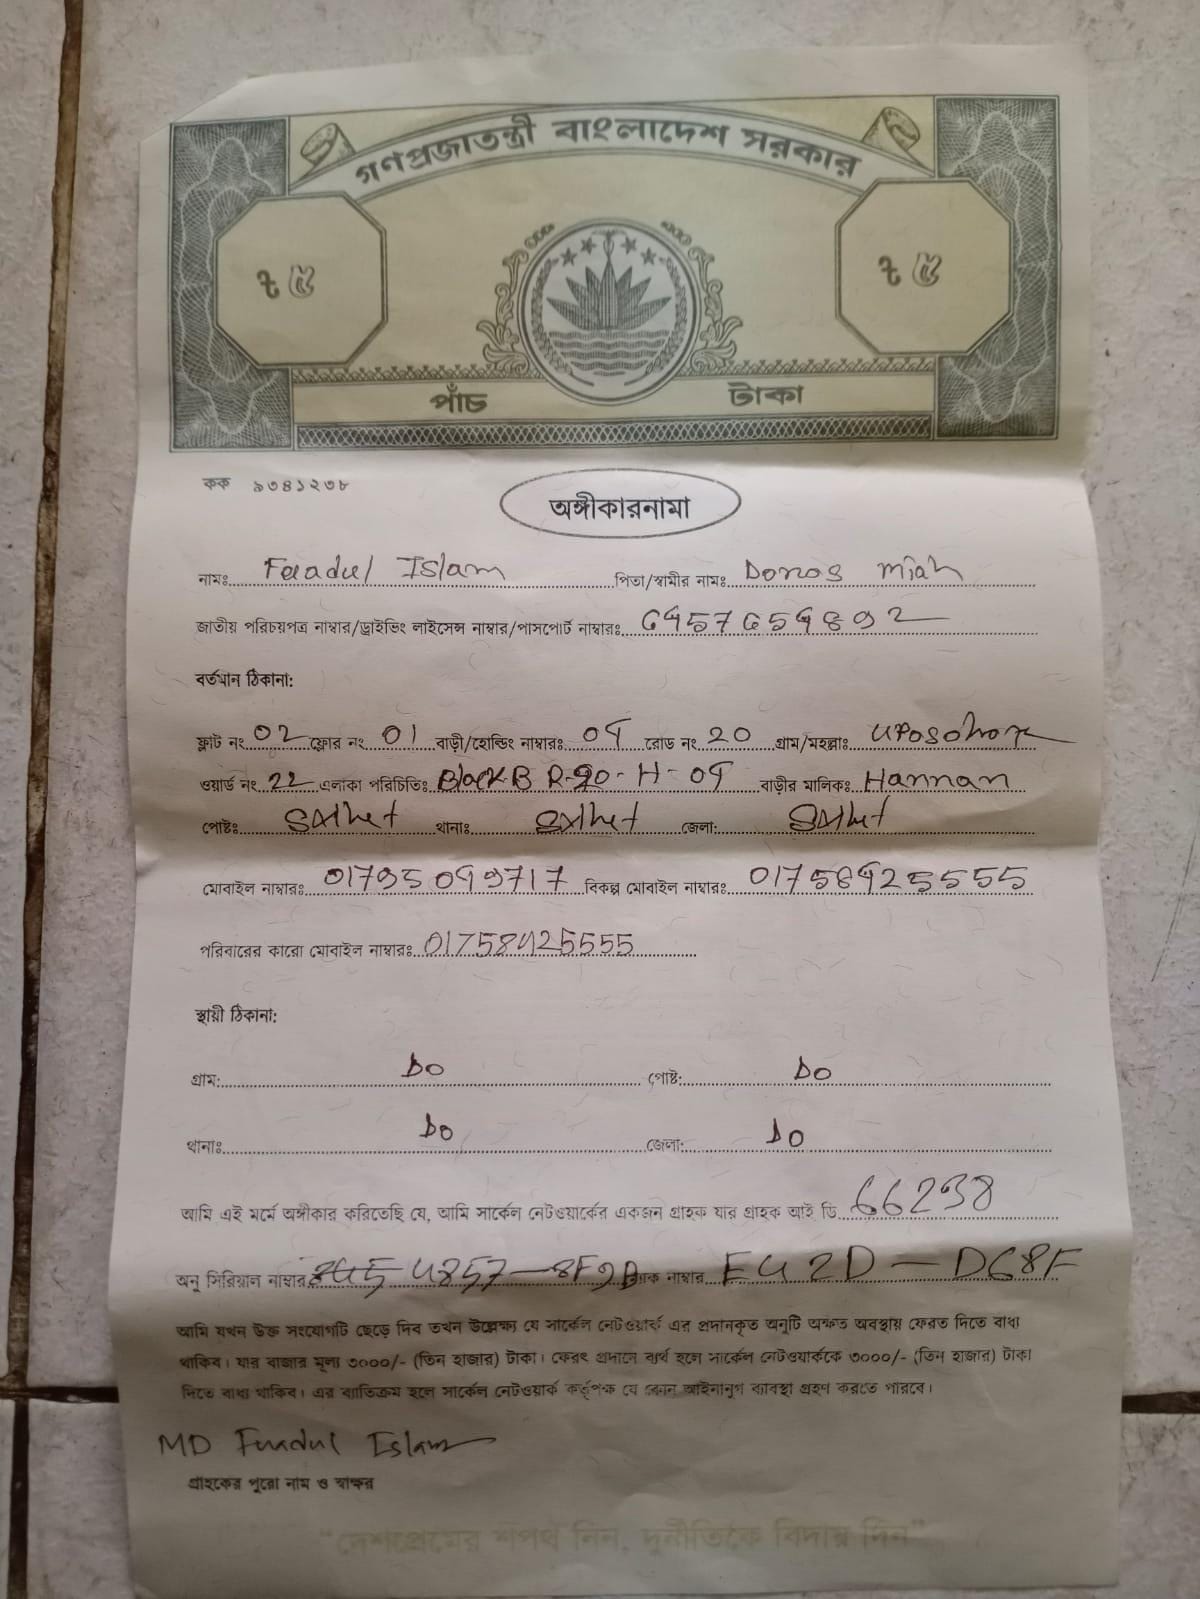 গণপ্রজাতন্ত্রী বাংলাদেশ সরকার
৳ ৫ ৳ ৫
পাঁচ টাকা
কক ৯৩৪১২৩৮
অঙ্গীকারনামা
নামঃ Fuadul Islam পিতা/স্বামীর নামঃ Donos miah
জাতীয় পরিচয়পত্র নাম্বার/ড্রাইভিং লাইসেন্স নাম্বার/পাসপোর্ট নাম্বারঃ
বর্তমান ঠিকানা:
ফ্লাট নং 02 ফ্লোর নং 01 বাড়ী/হোল্ডিং নাম্বারঃ 04 রোড নং 20 গ্রাম/মহল্লাঃ Uposohor
ওয়ার্ড নং 22 এলাকা পরিচিতিঃ Block B R-20-H-04 বাড়ীর মালিকঃ Hannan
পোষ্টঃ Sylhet থানাঃ Sylhet জেলা: Sylhet
মোবাইল নাম্বারঃ বিকল্প মোবাইল নাম্বারঃ 01758425555
পরিবারের কারো মোবাইল নাম্বারঃ 01758425555
স্থায়ী ঠিকানা:
গ্রাম: DO পোষ্ট: DO
থানাঃ DO জেলা: DO
আমি এই মর্মে অঙ্গীকার করিতেছি যে, আমি সার্কেল নেটওয়ার্কের একজন গ্রাহক যার গ্রাহক আই ডি 66238
অনু সিরিয়াল নাম্বার ম্যাক নাম্বার E42D-D68F
আমি যখন উক্ত সংযোগটি ছেড়ে দিব তখন উল্লেক্ষ্য যে সার্কেল নেটওয়ার্ক এর প্রদানকৃত অনুটি অক্ষত অবস্থায় ফেরত দিতে বাধ্য
থাকিব। যার বাজার মূল্য ৩০০০/- (তিন হাজার) টাকা। ফেরৎ প্রদানে ব্যর্থ হলে সার্কেল নেটওয়ার্ককে ৩০০০/- (তিন হাজার) টাকা
দিতে বাধ্য থাকিব। এর ব্যতিক্রম হলে সার্কেল নেটওয়ার্ক কর্তৃপক্ষ যে কোন আইনানুগ ব্যবস্থা গ্রহণ করতে পারবে।
MD Fuadul Islam
গ্রাহকের পুরো নাম ও স্বাক্ষর
"দেশপ্রেমের শপথ নিন, দুর্নীতিকে বিদায় দিন"